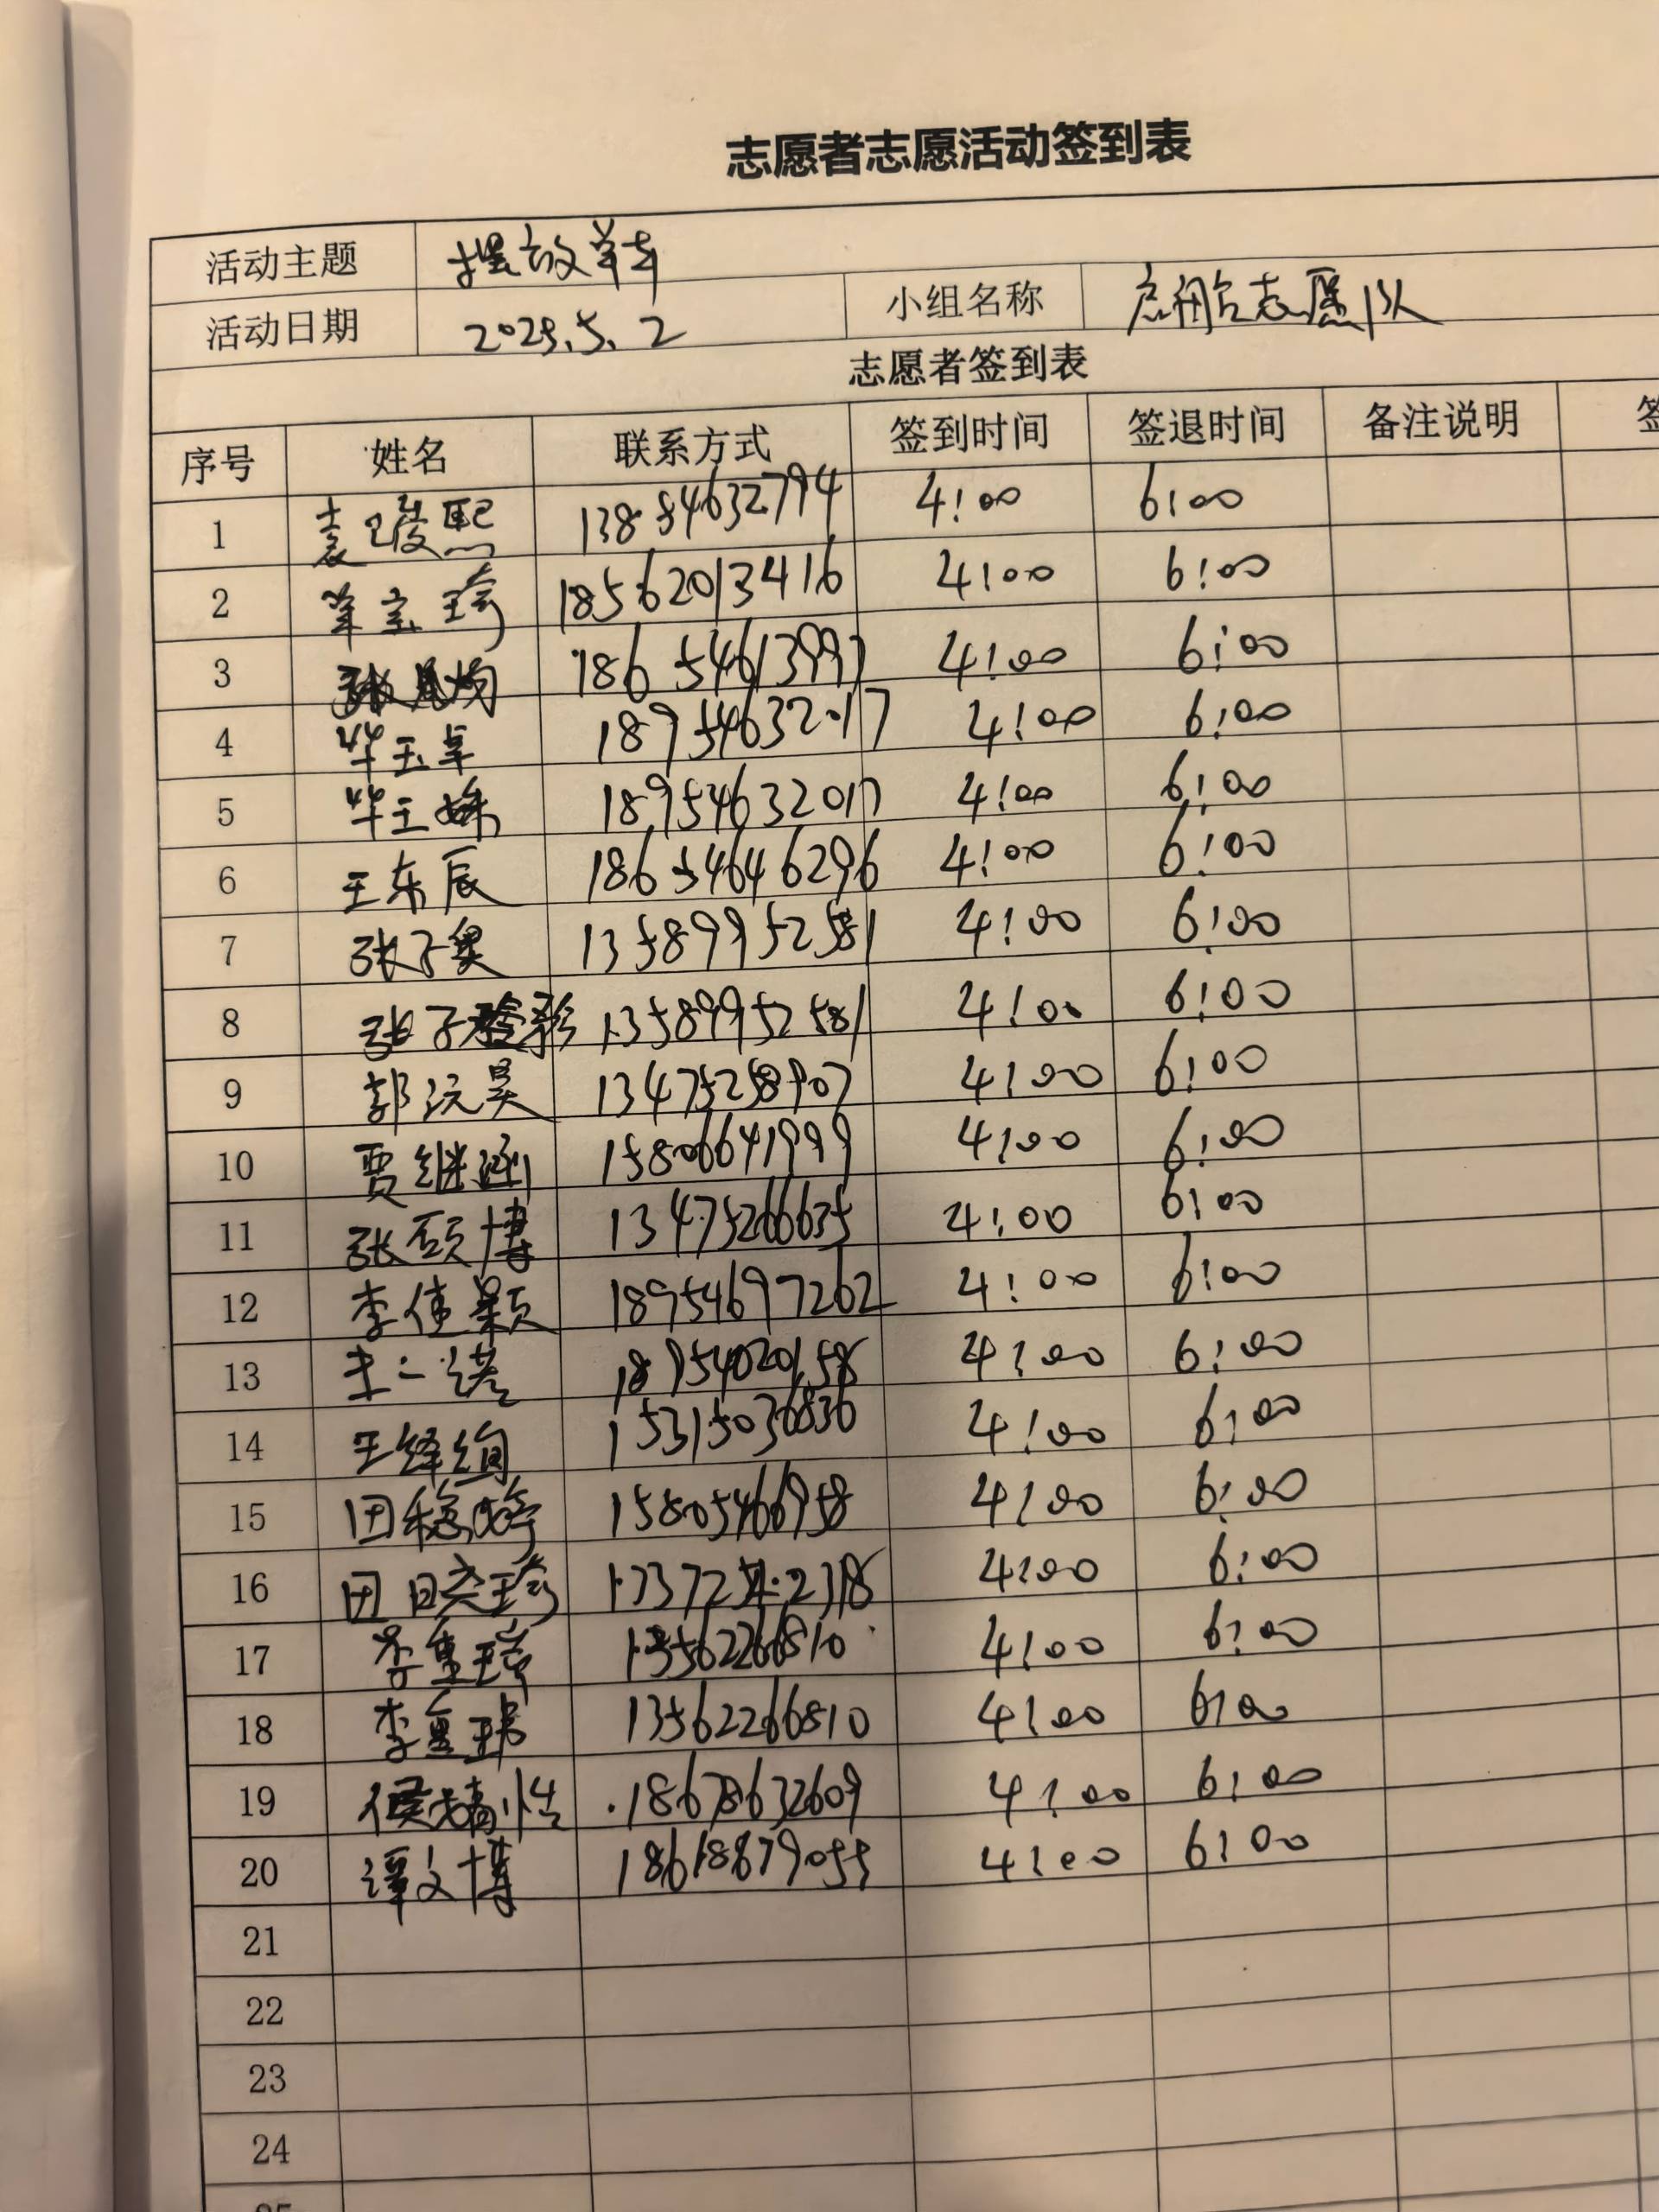 志愿者志愿活动签到表
活动主题 摆放单车
活动日期 2025.5.2 小组名称 志愿队
志愿者签到表
序号 姓名 联系方式 签到时间 签退时间 备注说明 签
1 袁熙 13854632794 4:00 6:00
2 18562013416 4:00 6:00
3 张 4:00 6:00
4 毕玉卓 18954632017 4:00 6:00
5 毕玉姝 18954632017 4:00 6:00
6 王东辰 18654646296 4:00 6:00
7 张子奥 13589952581 4:00 6:00
8 张子 13589952581 4:00 6:00
9 郭沅昊 13475258907 4:00 6:00
10 贾继涵 15806641999 4:00 6:00
11 张硕博 13475266635 4:00 6:00
12 李佳颖 18954697262 4:00 6:00
13 4:00 6:00
14 王绎绚 15315036836 4:00 6:00
15 田 15805466958 4:00 6:00
16 田 4:00 6:00
17 李 13562266810 4:00 6:00
18 李 13562266810 4:00 6:00
19 侯 18678632609 4:00 6:00
20 谭文博 18618679055 4:00 6:00
21
22
23
24